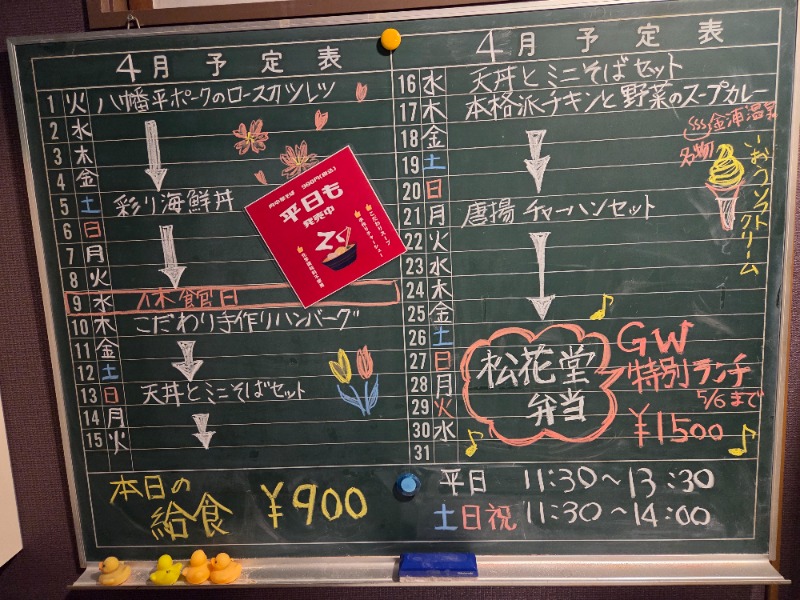 4月予定表
1 火 八幡平ポークのロースカツレツ
2 水
3 木
4 金
5 土 彩り海鮮丼
6 日
7 月
8 火
9 水 休館日
10 木 こだわり手作りハンバーグ
11 金
12 土
13 日 天丼とミニそばセット
14 月
15 火
900円(税込)
平日も
発売中
こだわりスープ
手作りチャーシュー
4月予定表
16 水 天丼とミニそばセット
17 木 本格派チキンと野菜のスープカレー
18 金
19 土
20 日
21 月 唐揚チャーハンセット
22 火
23 水
24 木
25 金
26 土
27 日
28 月
29 火
30 水
31
金浦温泉
名物
いおうソフトクリーム
松花堂
弁当
GW
特別ランチ
5/6まで
¥1500
本日の
給食 ¥900
平日 11:30~13:30
土日祝 11:30~14:00